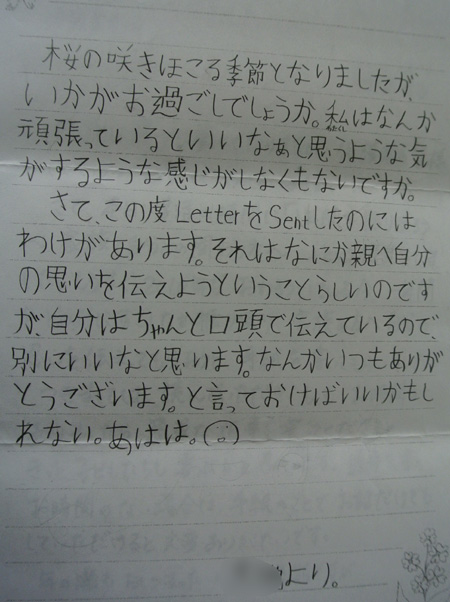 桜の咲きほこる季節となりましたが、
いかがお過ごしでしょうか。私はなんか
わたくし
頑張っているといいなぁと思うような気
がするような感じがしなくもないですか。
さて、この度LetterをSentしたのには
わけがあります。それはなにか親へ自分
の思いを伝えようということらしいのです
が、自分はちゃんと口頭で伝えているので、
別にいいなと思います。なんかいつもありが
とうございます。と言っておけばいいかもし
れない。あはは。
より。